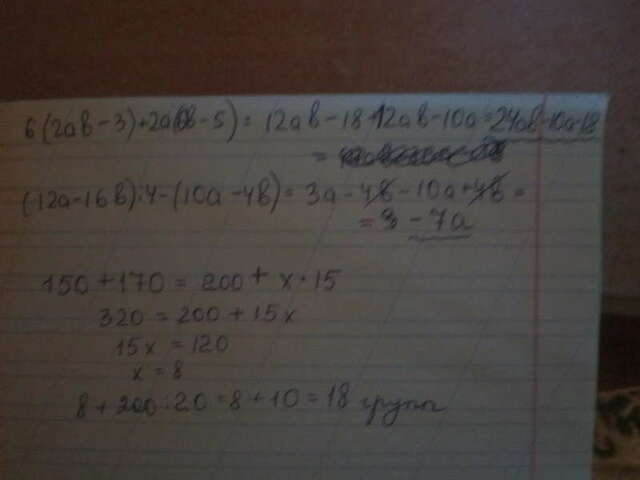 6(2ab-3)+2a(6b-5)=12ab-18+12ab-10a=24ab-10a-18
=
(12a-16b):4-(10a-4b)=3a-4b-10a+4b=
= -7a
150+170=200+x·15
320=200+15x
15x=120
x=8
8+200:20=8+10=18 групп